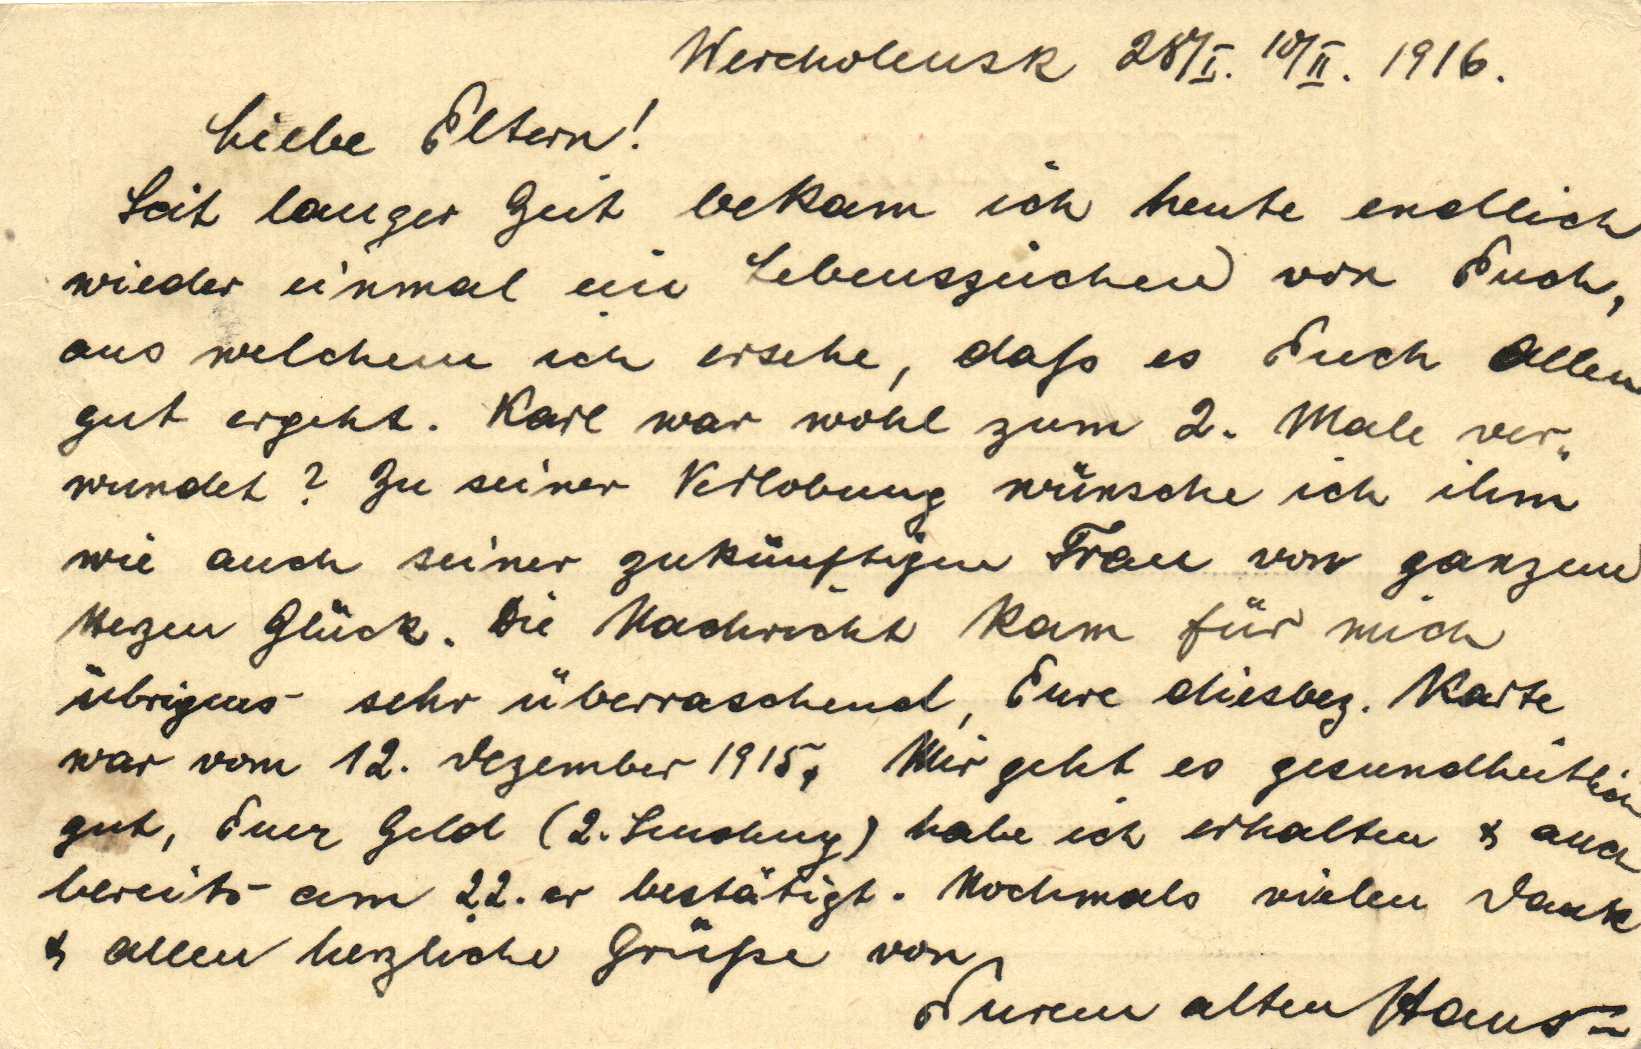 Wercholensk 28/I. 10/II. 1916.
Liebe Eltern!
Seit langer Zeit bekam ich heute endlich
wieder einmal ein Lebenszeichen von Euch,
aus welchem ich ersehe, daß es Euch allen
gut ergeht. Karl war wohl zum 2. Male ver-
wundet? Zu seiner Verlobung wünsche ich ihm
wie auch seiner zukünftigen Frau von ganzem
Herzen Glück. Die Nachricht kam für mich
übrigens sehr überraschend, Eure diesbez. Karte
war vom 12. Dezember 1915. Mir geht es gesundheitlich
gut, Euer Geld (2. Sendung) habe ich erhalten & auch
bereits am 22. er bestätigt. Nochmals vielen Dank
& allen herzliche Grüße von
Eurem alten Hans